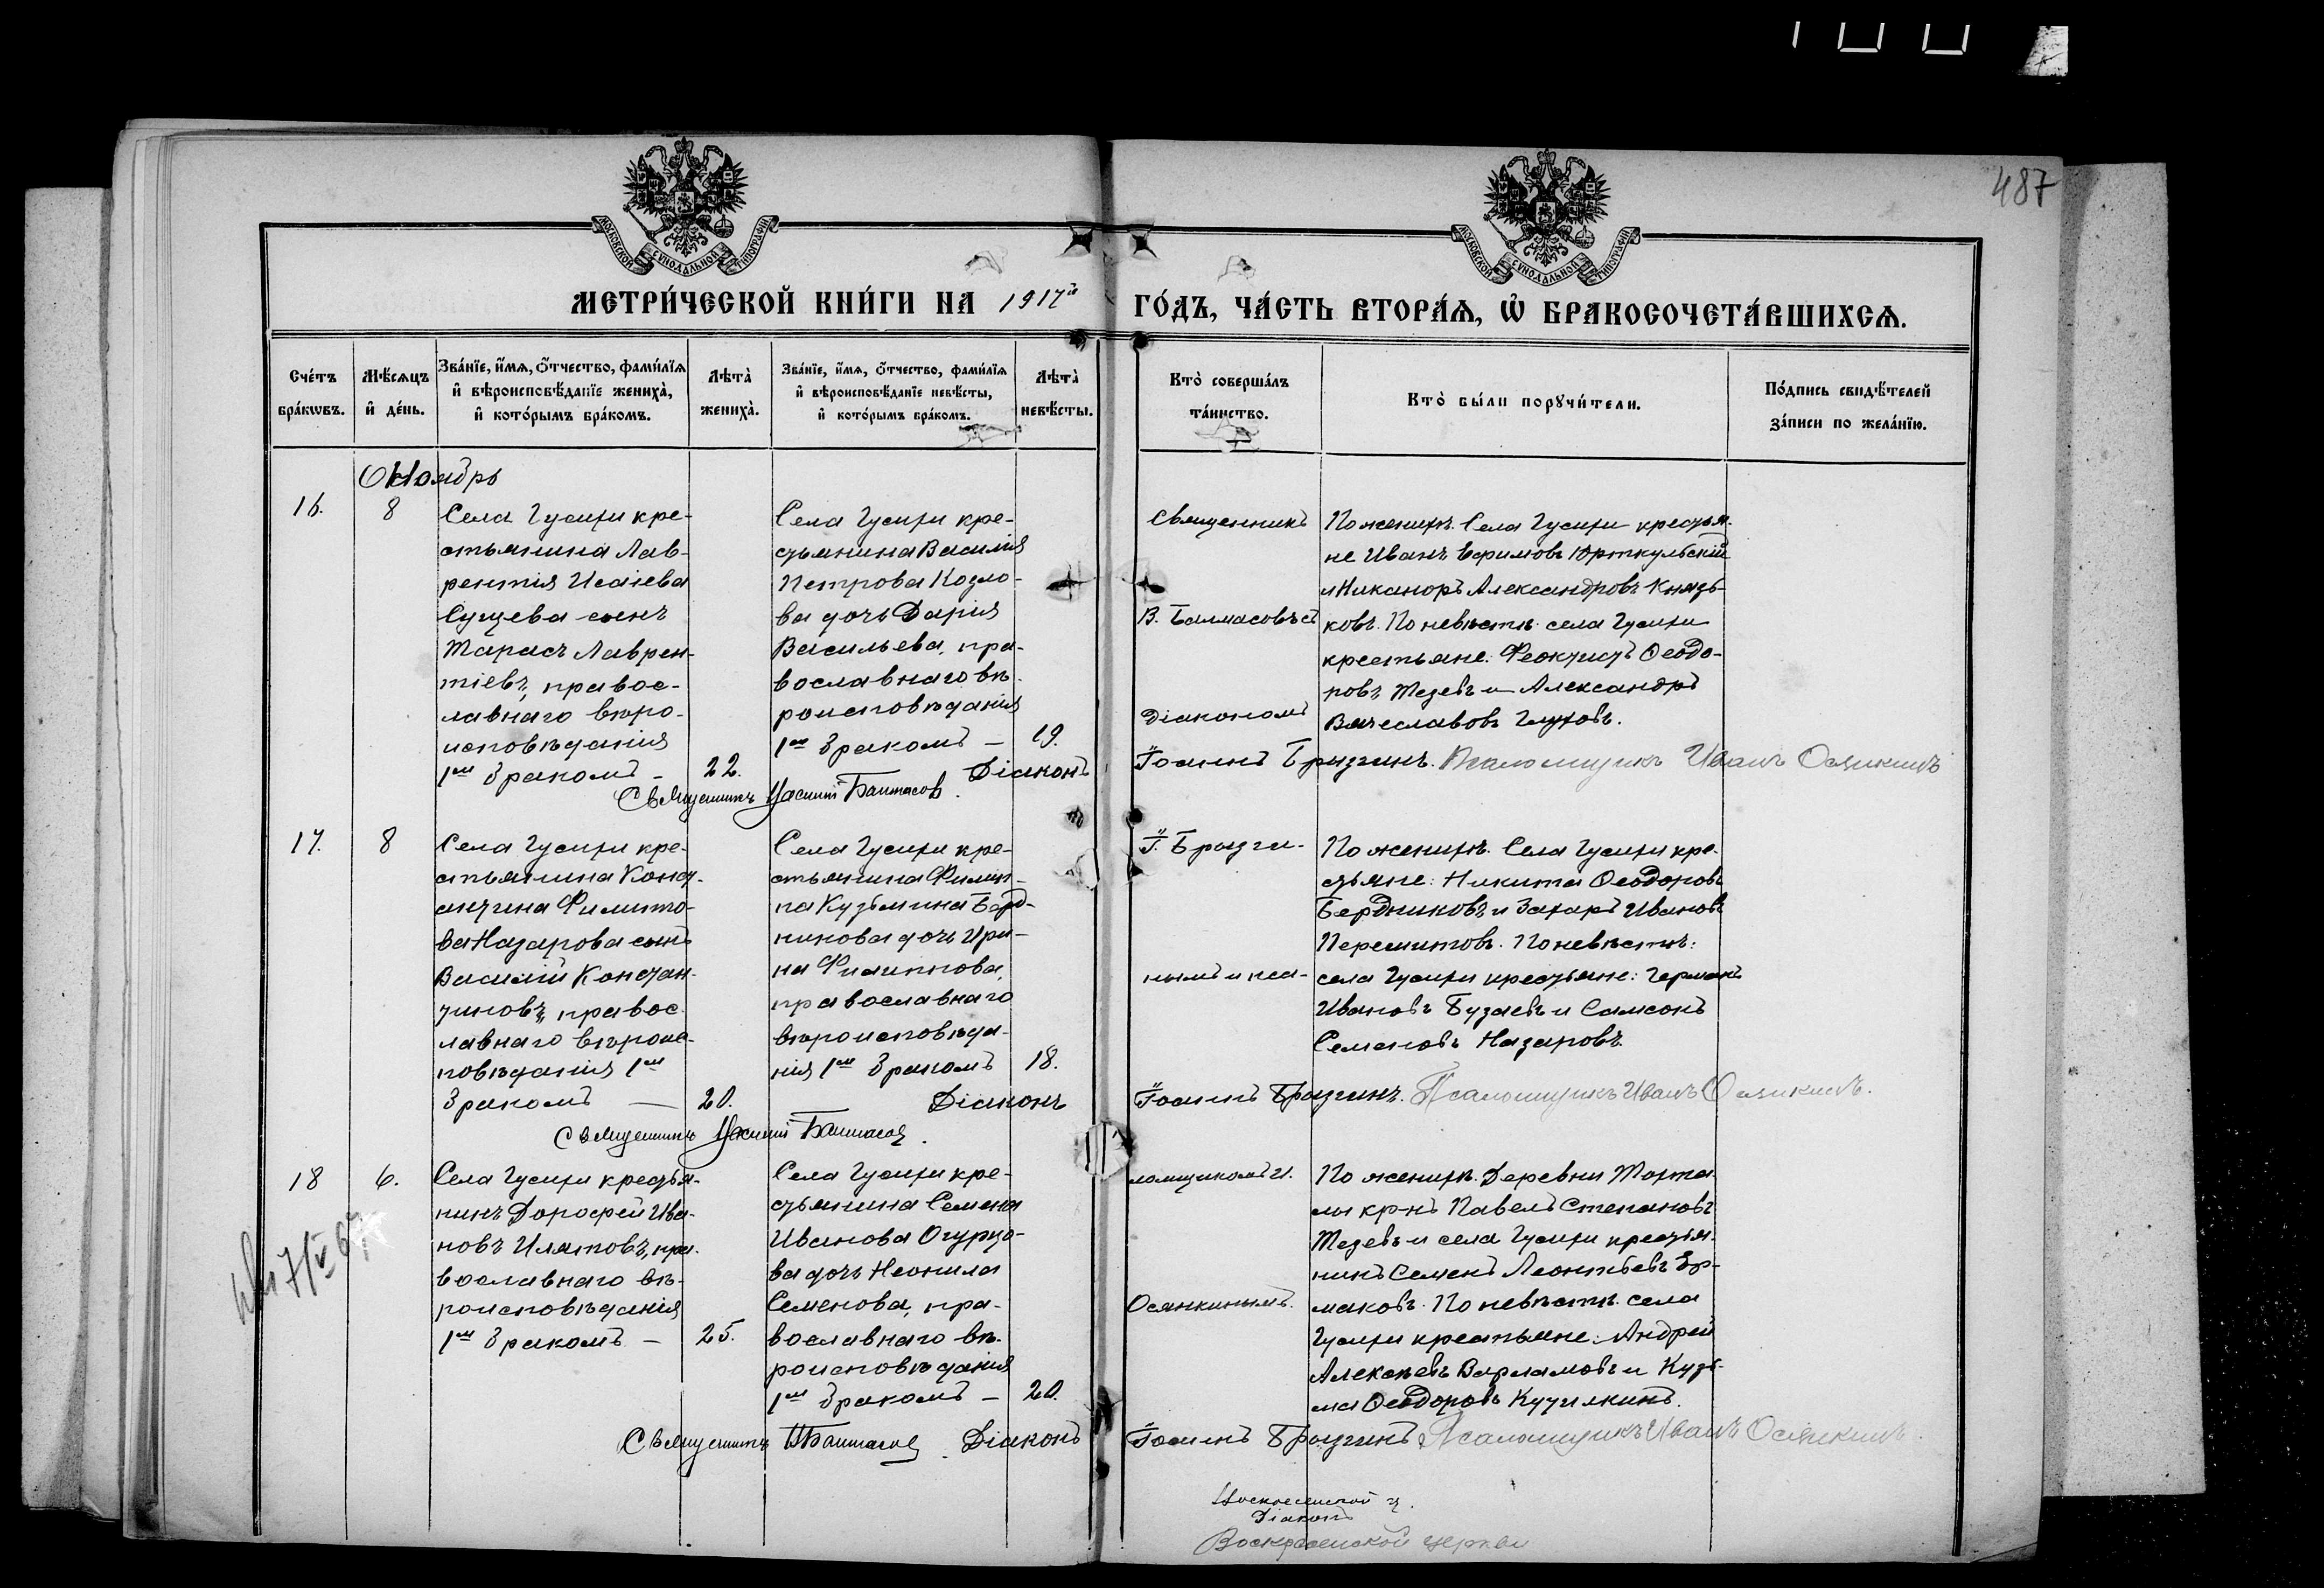 487
МОСКОВСКОЙ СѴНОДАЛЬНОЙ ТИПОГРАФІИ
МОСКОВСКОЙ СѴНОДАЛЬНОЙ ТИПОГРАФІИ
МЕТРИ́ЧЕСКОЙ КНИ́ГИ НА 1917й ГО́ДЪ, ЧА́СТЬ ВТОРА́Ѧ, Ѽ БРАКОСОЧЕТА́ВШИХСѦ.
Сче́тъ бра́кѡвъ.
Мѣ́сяцъ и҆ де́нь.
Зва́нїе, и҆́мя, ѻ҆́тчество, фами́лїя
и҆ вѣроисповѣ́данїе жениха̀,
и҆ кото́рымъ бра́комъ.
Лѣта̀ жениха̀.
Зва́нїе, и҆́мя, ѻ҆́тчество, фами́лїя
и҆ вѣроисповѣ́данїе невѣ́сты,
и҆ кото́рымъ бра́комъ.
Лѣта̀ невѣ́сты.
Кто̀ соверша́лъ та́инство.
Кто̀ бы́ли порꙋчи́тели.
По́дпись свидѣ́телей за́писи по жела́нїю.
16.
8
Села Гусихи кре-
стьянина Лав-
рентія Исаіева
Сущева сынъ
Тарасъ Лаврен-
тіевъ, правос-
лавнаго вѣро-
исповѣданія
1мъ бракомъ —
22.
Села Гусихи кре-
стьянина Василія
Петрова Козло-
ва дочь Дарія
Васильева, пра-
вославнаго вѣ-
роисповѣданія
1мъ бракомъ —
19.
Священникъ
В. Балмасовъ съ
Діакономъ
По женихѣ: Села Гусихи крестья-
не Иванъ Ефимовъ Юрткульскій
и Никаноръ Александровъ Князь-
ковъ. По невѣстѣ: села Гусихи
крестьяне: Феоктистъ Ѳеодо-
ровъ Тезевъ и Александръ
Вячеславовъ Глуховъ.
Священникъ Василій Балмасов. Діаконъ Іоаннъ Брызгинъ. Псаломщикъ Иванъ Осянкинъ
17.
8
Села Гусихи кре-
стьянина Конст-
антина Филито-
ва Назарова сынъ
Василій Констан-
тиновъ, правос-
лавнаго вѣроис-
повѣданія 1мъ
бракомъ —
20.
Села Гусихи кре-
стьянина Филип-
па Кузьмина Берд-
никова дочь Ири-
на Филиппова,
православнаго
вѣроисповѣда-
нія 1мъ бракомъ
18.
І. Брызги-
нымъ и пса-
По женихѣ: Села Гусихи кре-
стьяне: Никита Ѳеодоровъ
Бердниковъ и Захаръ Ивановъ
По невѣстѣ:
села Гусихи крестьяне: Германъ
Ивановъ Бузаевъ и Самсонъ
Семеновъ Назаровъ.
Священникъ Василій Балмасов. Діаконъ Іоаннъ Брызгинъ. Псаломщикъ Иванъ Осянкинъ.
18
6.
Села Гусихи крестья-
нинъ Дорофей Ива-
новъ Илятовъ, пра-
вославнаго вѣ-
роисповѣданія
1мъ бракомъ —
25.
Села Гусихи кре-
стьянина Семена
Иванова Огурцо-
ва дочь Неонила
Семенова, пра-
вославнаго вѣ-
роисповѣданія
1мъ бракомъ —
20.
ломщикомъ И.
Осянкинымъ.
По женихѣ: Деревни
кр-нъ Павелъ Степановъ
Тезевъ и села Гусихи крестья-
нинъ Семенъ Леонтьевъ Ер-
маковъ. По невѣстѣ: села
Гусихи крестьяне: Андрей
Алексѣевъ Варламовъ и Кузь-
ма Ѳеодоровъ
Священникъ В Балмасов. Діаконъ Іоаннъ Брызгинъ Псаломщикъ Иванъ Осянкинъ.
Діаконъ
Воскресенской церкви